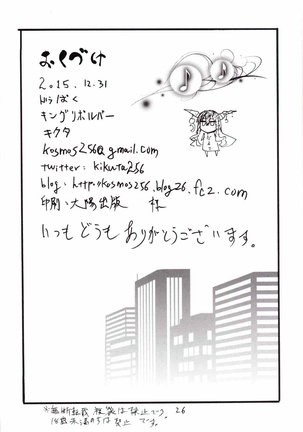 おくづけ
2015.12.31
はっぱく
キングリボルバー
キクタ
kosmos256@g.mail.com
twitter: kikuta256
blog: http://kosmos256.blog26.fc2.com
印刷: 大陽出版 様
いつもどうもありがとうございます。
*無断転載 複製は禁止です。
18歳未満の方は禁止です。
26